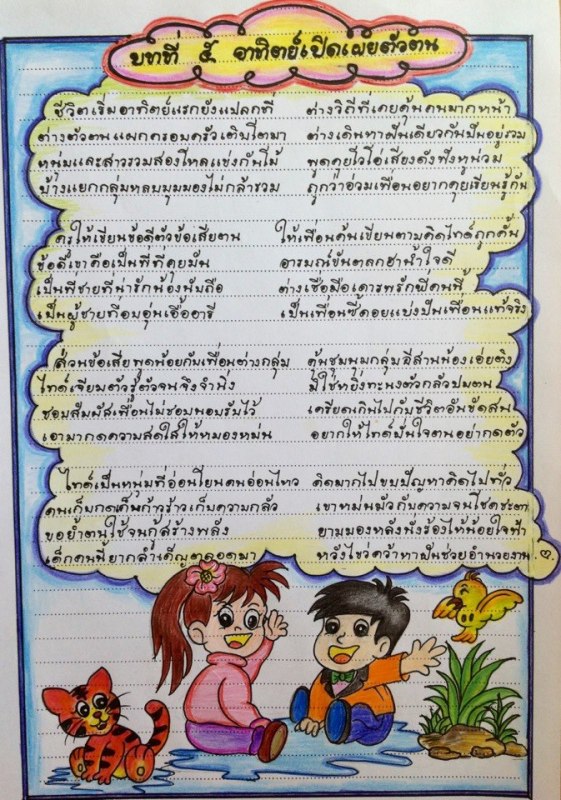 บทที่ ๕ อาทิตย์เปิดเผยตัวตน
ชีวิตเริ่มอาทิตย์แรกยังแปลกที่ ต่างวิถีที่เคยคุ้นคนมากหน้า
ต่างตัวตนแผกครอบครัวเติบโตมา ต่างเดินหาฝันเดียวกันปันอยู่รวม
หนุ่มและสาวรวมสองโหลแข่งกันโม้ พูดคุยโวโอ่เสียงดังฟังหูน่วม
บ้างแยกกลุ่มหลบมุมมองไม่กล้ารวม ถูกว่าอ่วมเพื่อนอยากคุยเรียนรู้กัน
ครูให้เขียนข้อดีตัวข้อเสียตน ให้เพื่อนค้นเขียนตามคิดไทด์ถูกคั้น
ข้อดีเขาคือเป็นพี่ที่คุยมัน อารมณ์ขันตลกฮาน้ำใจดี
เป็นพี่ชายที่น่ารักน้องนับถือ ต่างเชื่อมือเคารพรักพี่คนนี้
เป็นผู้ชายที่อบอุ่นเอื้ออารี เป็นเพื่อนซี้คอยแบ่งปันเพื่อนแท้จริง
ส่วนข้อเสียพูดน้อยกับเพื่อนต่างกลุ่ม คุ้นชุมนุมกลุ่มอีสานน้องเอ๋ยติง
ไทด์เจียมตัวรู้ตัวจนจึงจำนิ่ง มิใช่หยิ่งทะนงตัวกลัวปมตน
ชอบสัมผัสเพื่อนไม่ชอบนอบรับไว้ เครียดเกินไปกับชีวิตอันขัดสน
เอามากดความสดใสให้หมองหม่น อยากให้ไทด์มั่นใจตนอย่ากดตัว
ไทด์เป็นหนุ่มที่อ่อนโยนคนอ่อนไหว คิดมากไปขบปัญหาคิดไปทั่ว
คนเก็บกดเค็นก้าวร้าวเก็บความกลัว เขาหม่นมัวกับความจนโชคชะตา
ขอย้ำตนใช้จนกู้สร้างพลัง ยามมองหลังนั่งร้องไห้น้อยใจฟ้า
เด็กคนนี้ยากล้ำเค็ญตลอดมา หวังไขว่คว้าหาฝันช่วยอำนวยงาน